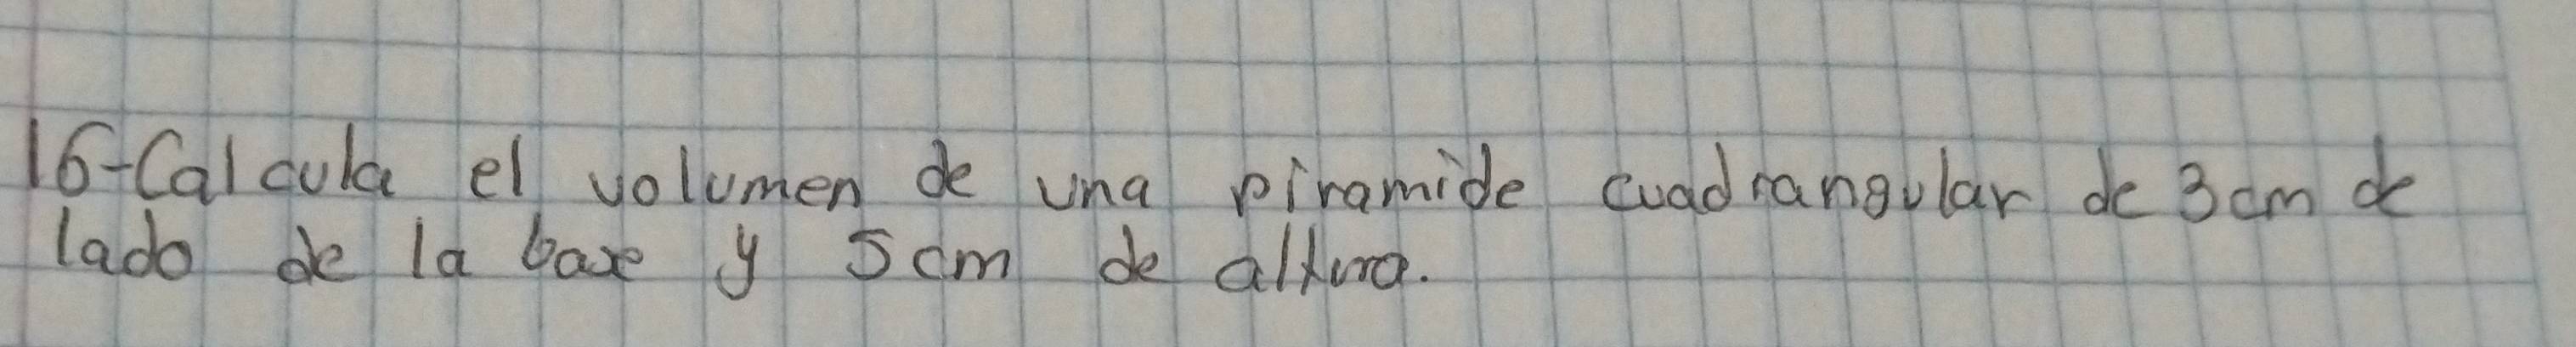 16-Calcula el volumen de una piramide cuadrangular de 3cm de
lado de la base y 5cm de altura.